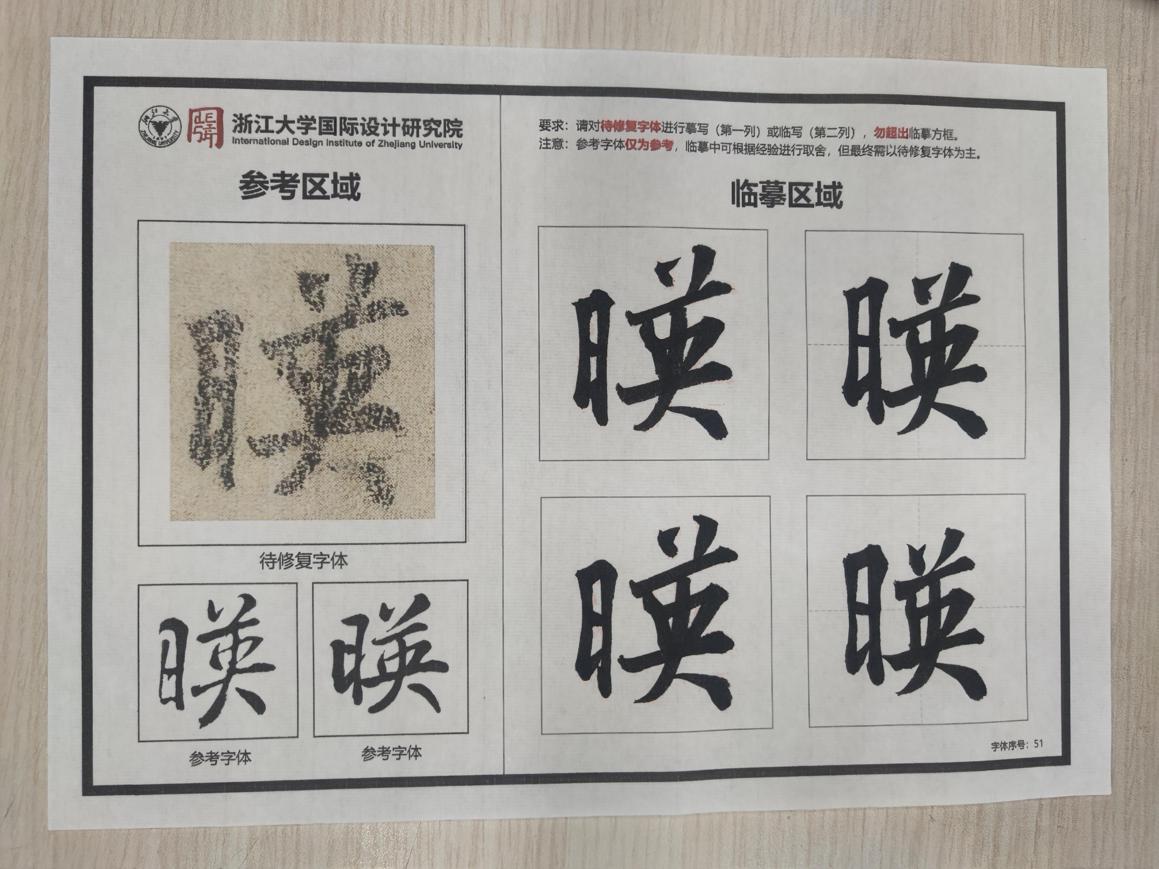 浙江大学国际设计研究院
International Design Institute of Zhejiang University
参考区域
暎
待修复字体
暎
参考字体
暎
参考字体
要求：请对待修复字体进行摹写（第一列）或临写（第二列），勿超出临摹方框。
注意：参考字体仅为参考，临摹中可根据经验进行取舍，但最终需以待修复字体为主。
临摹区域
暎 暎
暎 暎
字体序号：51